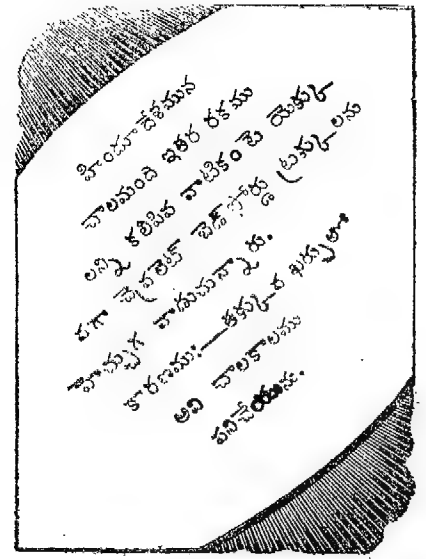 హిందూదేశమున
చాలమంది ఇతర రకము
లన్ని కలిపిన వాటికం టె యెక్కు
వగా చైవలెట్ బెడ్‌ఫోర్డు ట్రక్కులను
హెచ్చుగ వాడుచున్నారు.
కారణము:—తక్కువ ఖర్చుతో
అవి చాలకాలము
పనిచేయును.